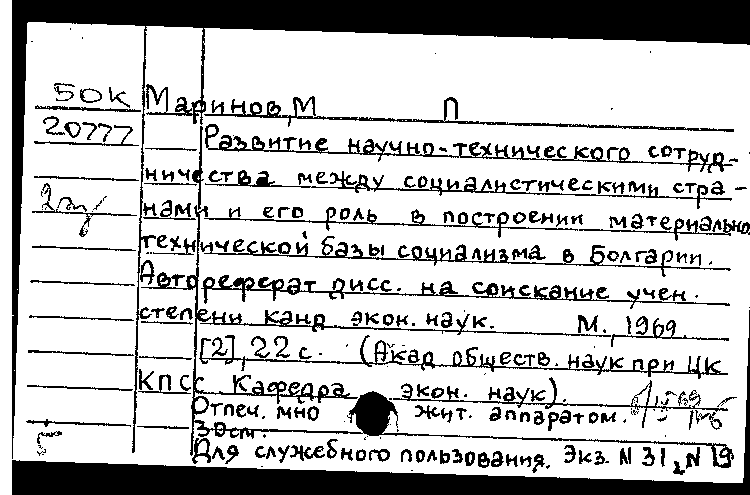 50К Маринов, М П
20777 Развитие научно-технического сотруд-
ничества между социалистическими стра-
нами и его роль в построении материально
технической базы социализма в Болгарии.
Автореферат дисс. на соискание учен.
степени канд экон. наук. М., 1969.
[2], 22 с. (Акад обществ. наук при ЦК
КПСС Кафедра экон. наук).
Отпеч. мно жит. аппаратом.
Для служебного пользования. Экз. N 31, N 19